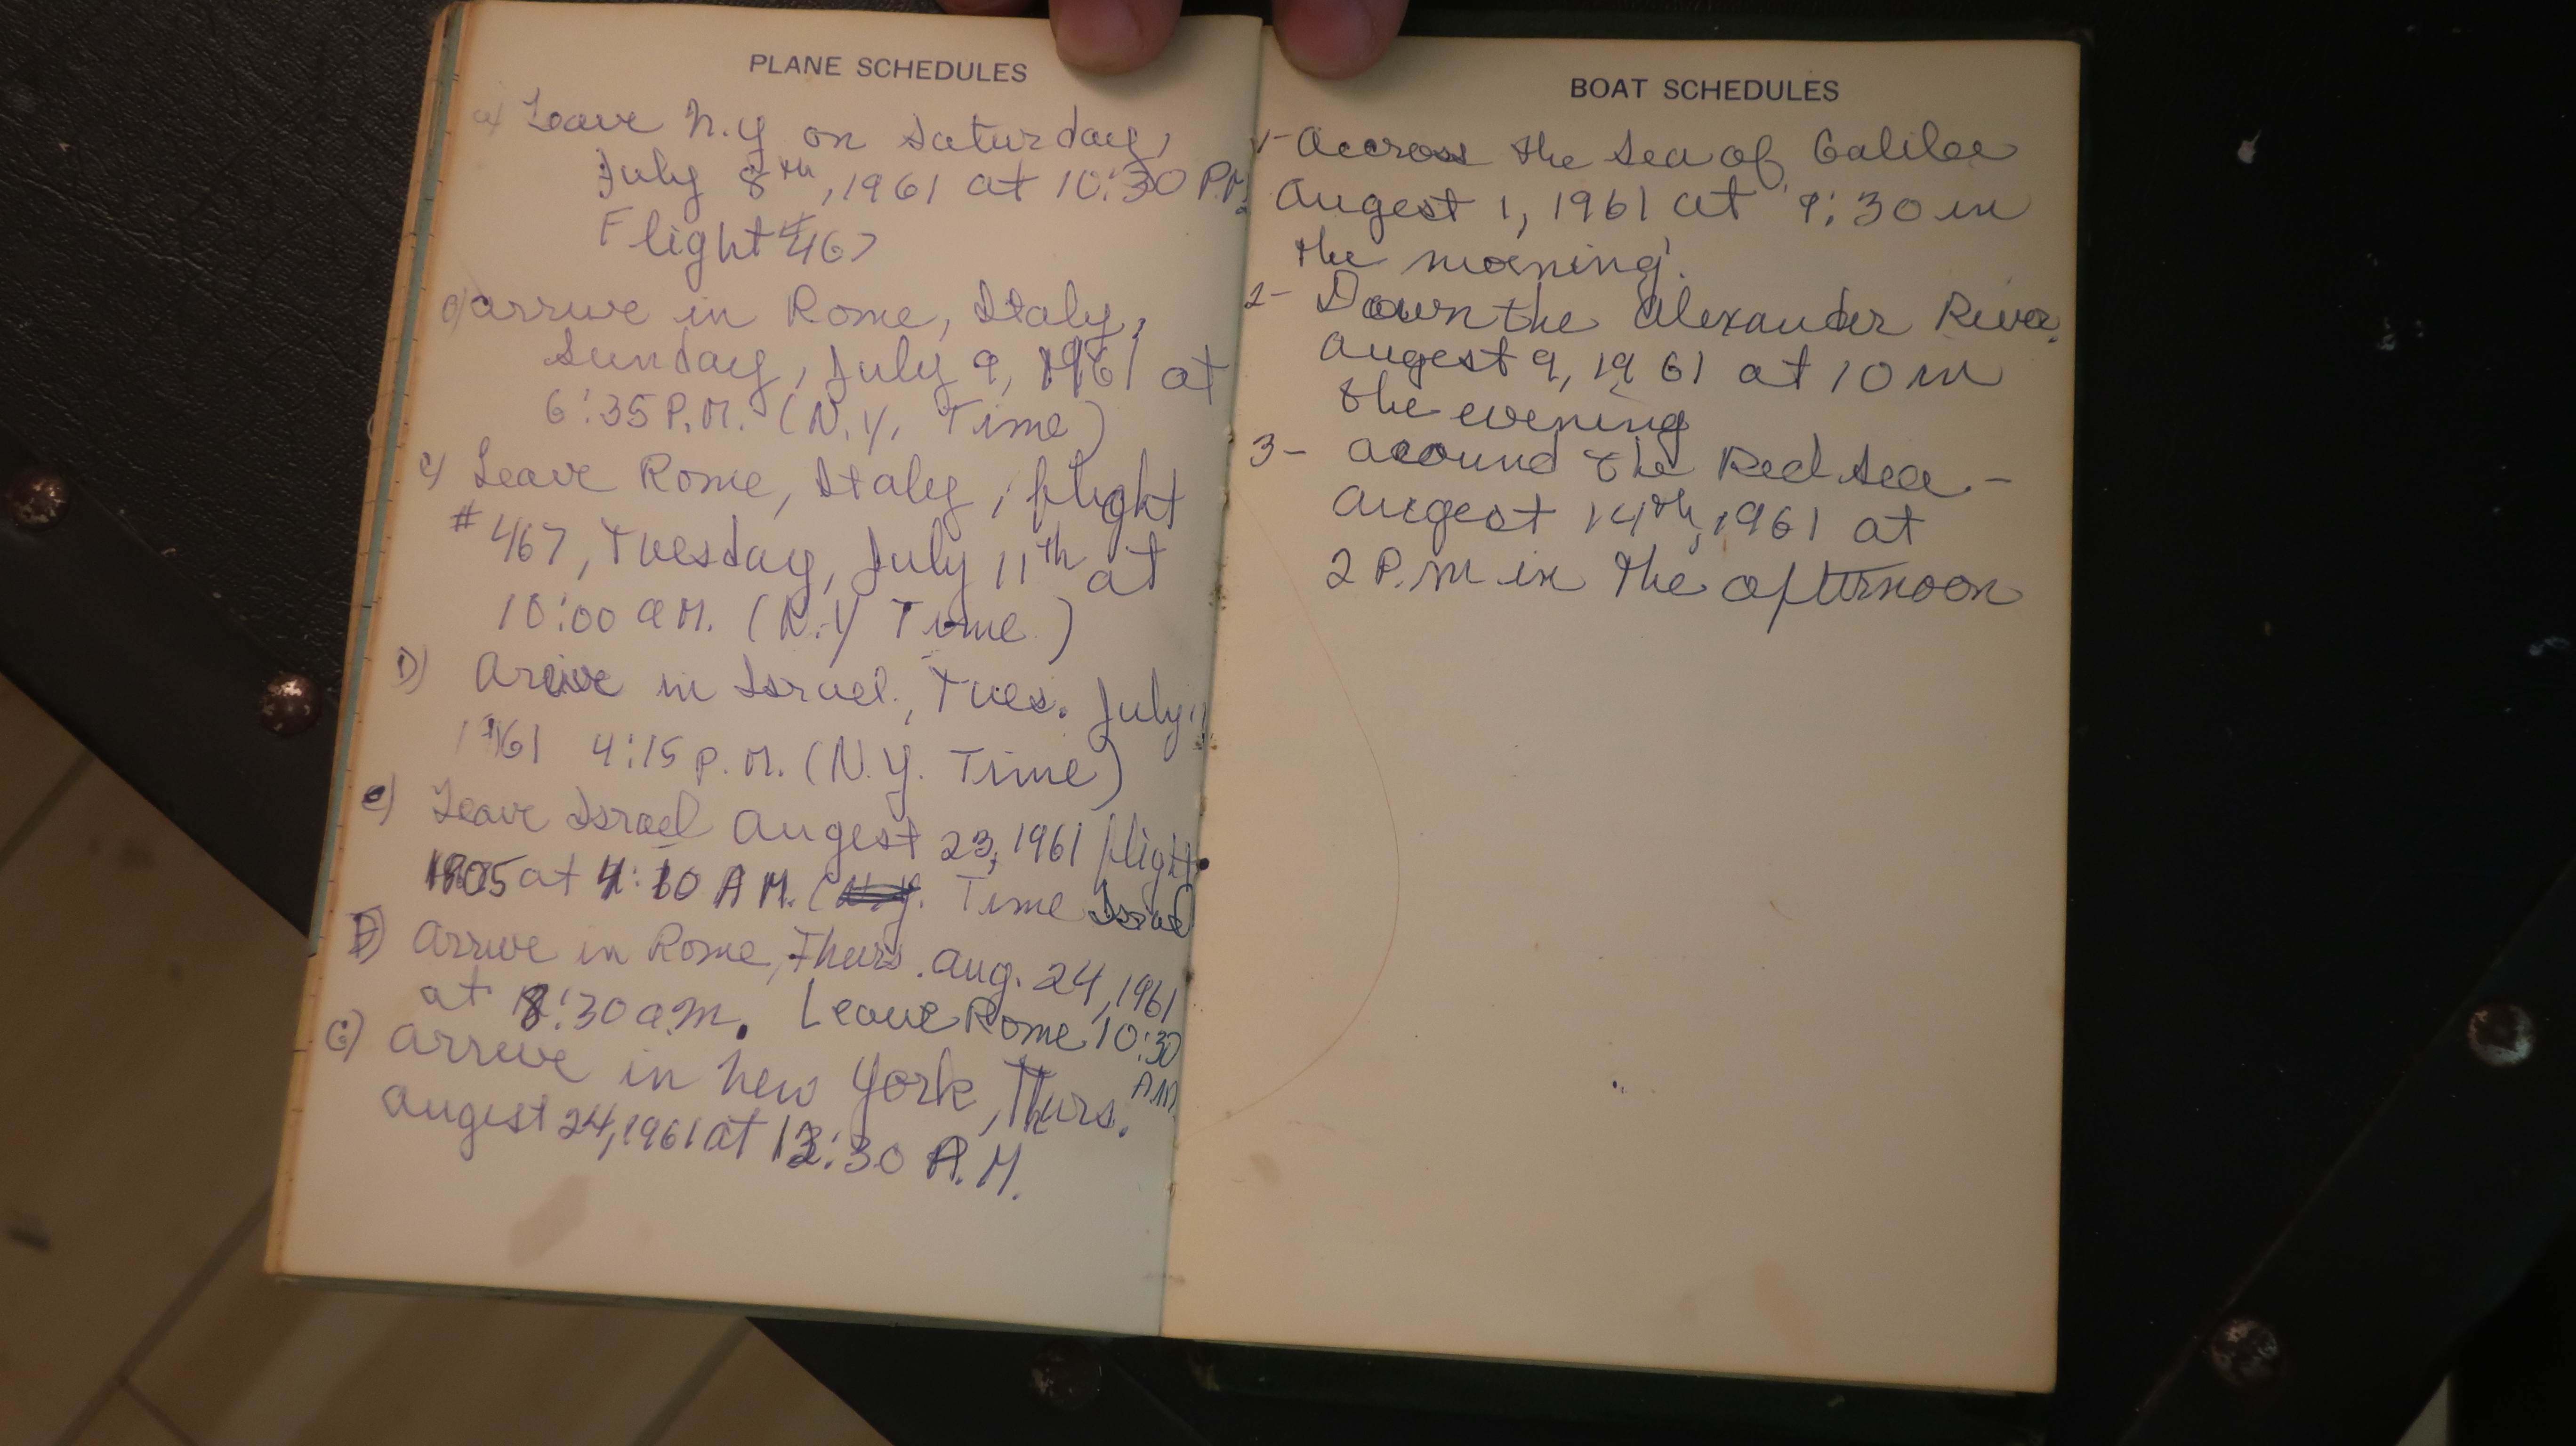 PLANE SCHEDULES
a) Leave N.Y on Saturday,
July 8th, 1961 at 10:30 P.M.
Flight #467
arrive in Rome, Italy,
Sunday, July 9, 1961 at
6:35 P.M. (N.Y. Time)
c) Leave Rome, Italy, flight
#467, Tuesday, July 11th at
10:00 a M. (N.Y Time)
D) Arrive in Israel, Tues. July 11
1961 4:15 P.M. (N.Y. Time)
e) Leave Israel Augest 23, 1961 flight
at 4:10 A M. ( Time Israel
F) Arrive in Rome, Thurs. Aug. 24, 1961
at 8:30 a.m. Leave Rome 10:30
A.M.
G) Arrive in New York, Thurs.
Augest 24, 1961 at :30 P.M.
BOAT SCHEDULES
1- Accross the Sea of Galilee
Augest 1, 1961 at 9:30 in
the morning.
2- Down the Alexander River.
Augest 9, 1961 at 10 in
the evening
3- Around the Red Sea. -
Augest 14th, 1961 at
2 P.M in the afternoon